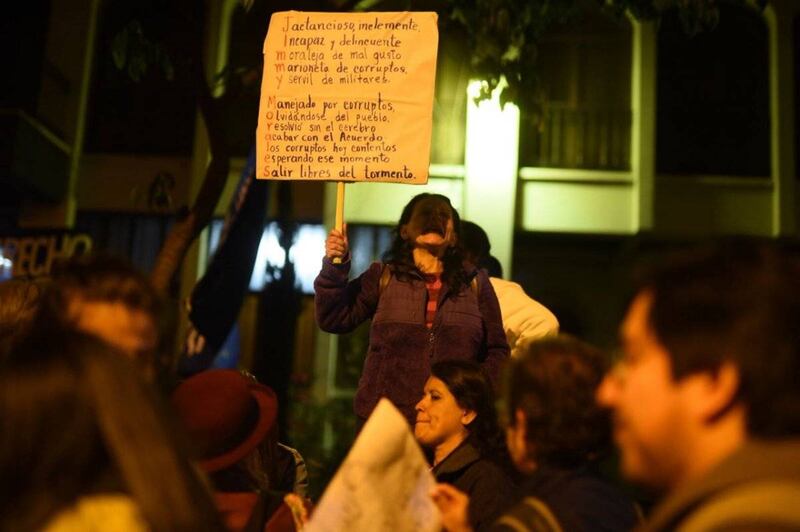 Jactancioso, inclemente,
Incapaz y delincuente
moraleja de mal gusto
marioneta de corruptos,
y servil de militares.
Manejado por corruptos,
olvidándose del pueblo,
resolvió sin el cerebro
acabar con el Acuerdo
los corruptos hoy contentos
esperando ese momento
Salir libres del tormento.
RECHO